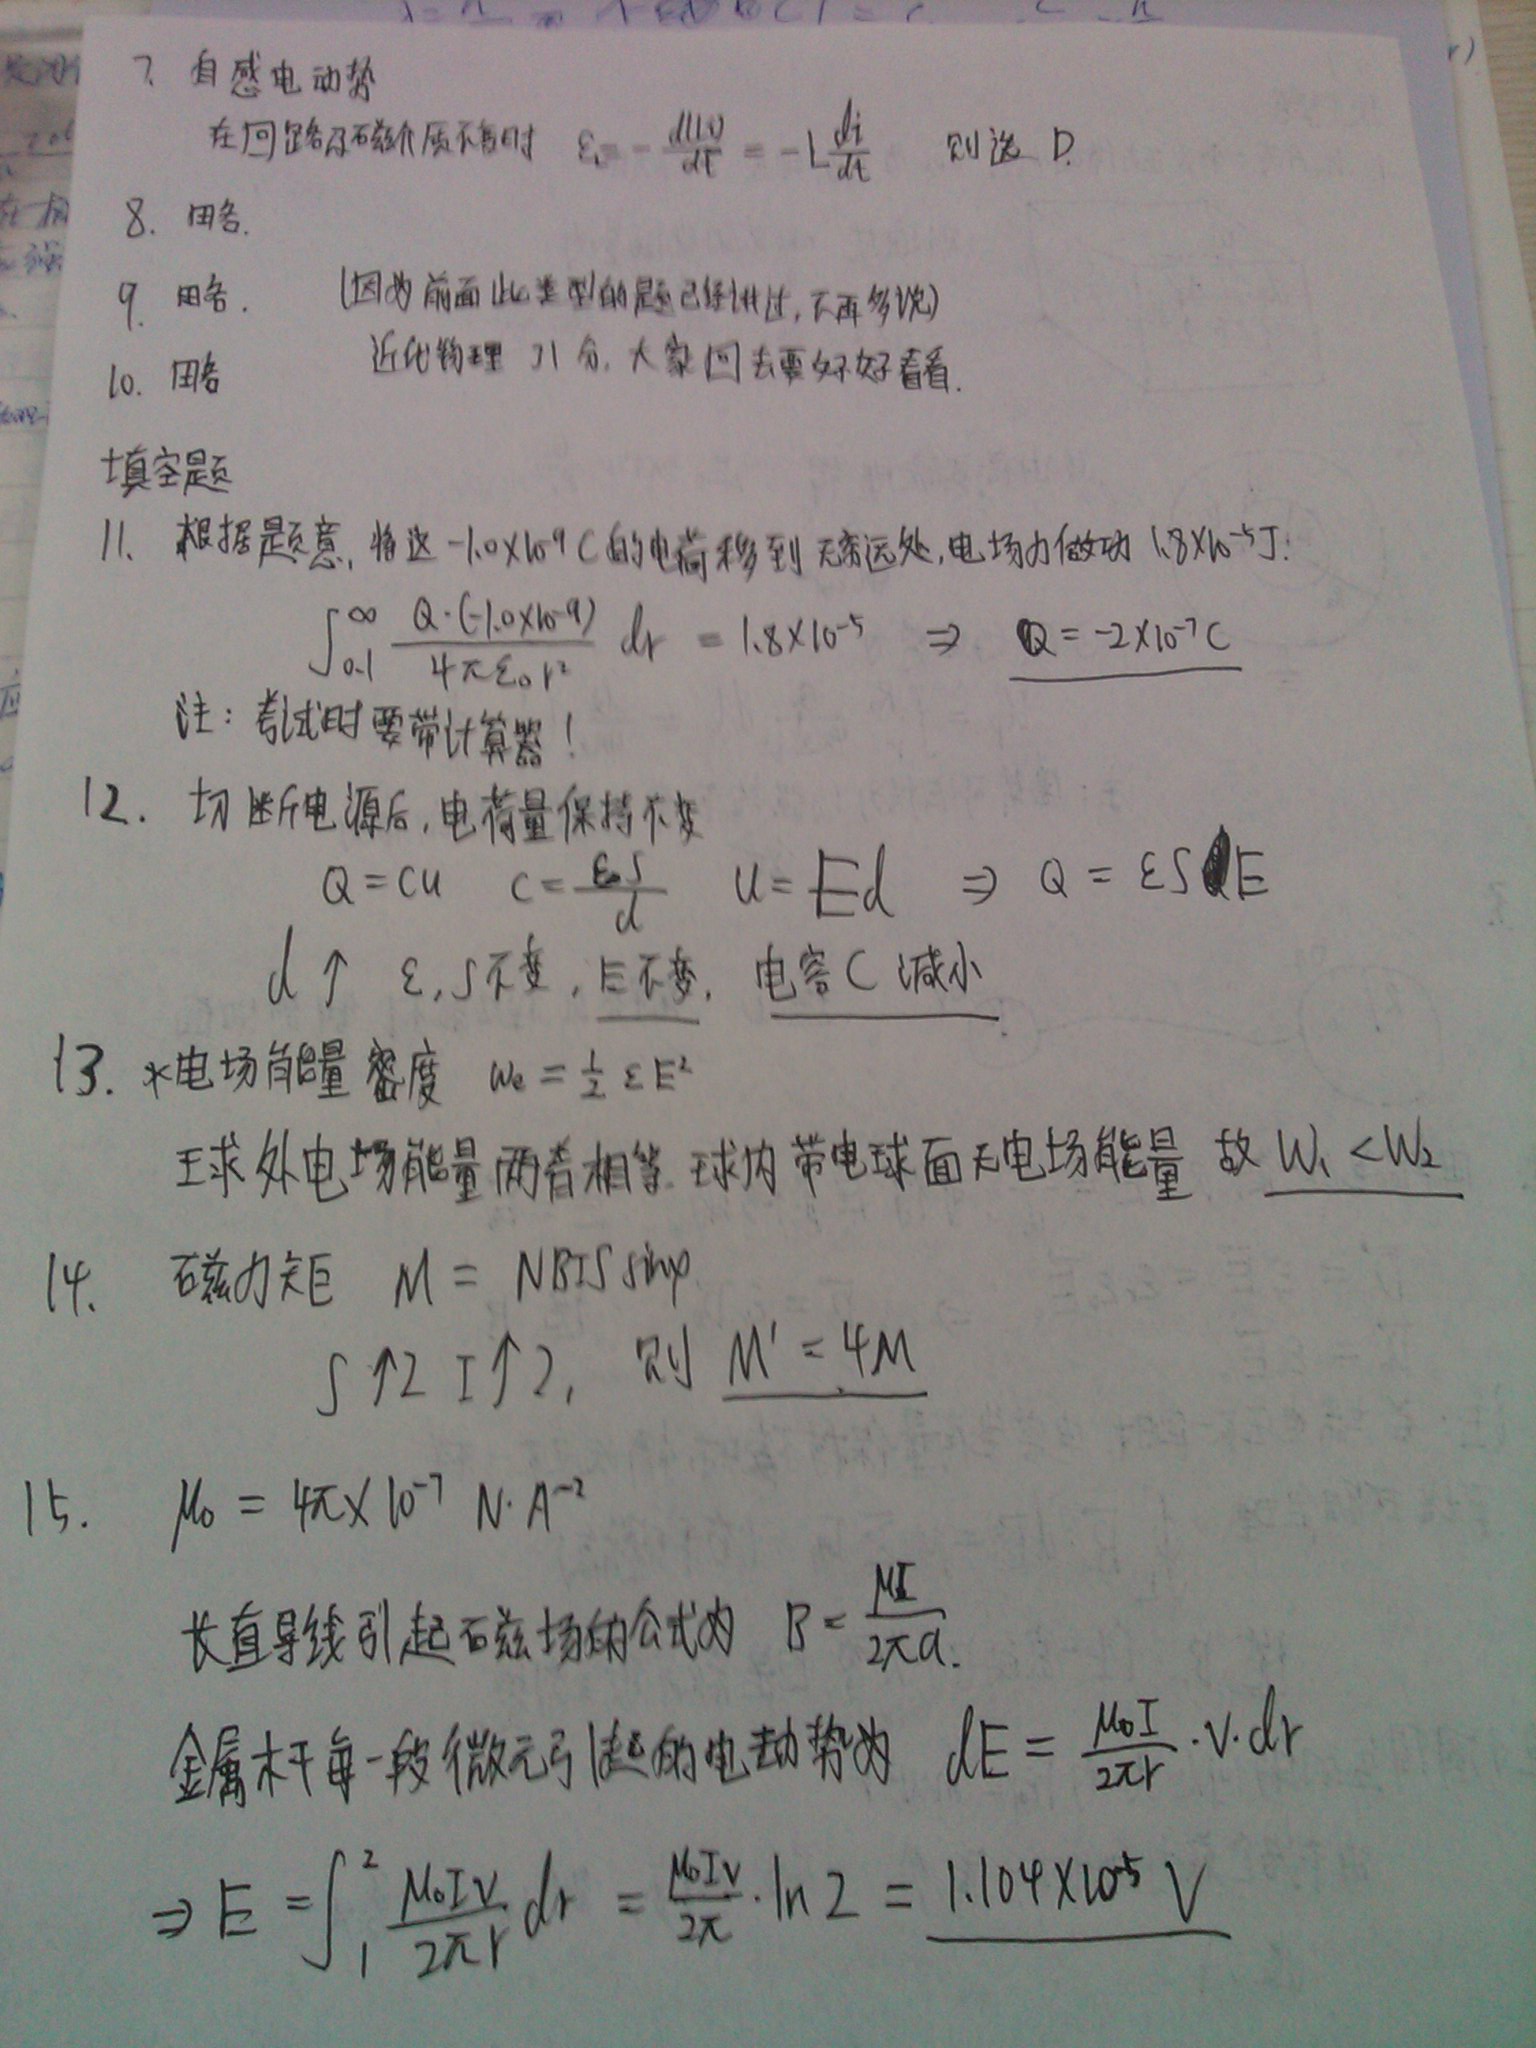 7. 自感电动势
在回路及磁介质不变时 ε_L = -d(LI)/dt = -L di/dt 则选 D.
8. 略.
9. 略. (因为前面此类型的题已经讲过,不再多说)
10. 略 近代物理 21 分,大家回去要好好看看.
填空题
11. 根据题意,将这 -1.0×10⁻⁹ C 的电荷移到无穷远处,电场力做功 1.8×10⁻⁵J.
∫_{0.1}^{∞} Q·(-1.0×10⁻⁹)/(4πε₀r²) dr = 1.8×10⁻⁵ ⇒ Q = -2×10⁻⁷ C
注: 考试时要带计算器!
12. 切断电源后,电荷量保持不变
Q = CU C = ε₀S/d U = Ed ⇒ Q = εSE
d↑ ε,S不变,E不变, 电容C减小
13. *电场能量密度 We = ½ εE²
球外电场能量两者相等.球内带电球面无电场能量 故 W₁ < W₂
14. 磁力矩 M = NBIS sinφ
S↑2 I↑2, 则 M' = 4M
15. μ₀ = 4π×10⁻⁷ N·A⁻²
长直导线引起磁场的公式为 B = μI/2πa.
金属杆每一段微元引起的电动势为 dE = μ₀I/2πr · v·dr
⇒ E = ∫₁² μ₀Iv/2πr dr = μ₀Iv/2π · ln2 = 1.104×10⁻⁵ V